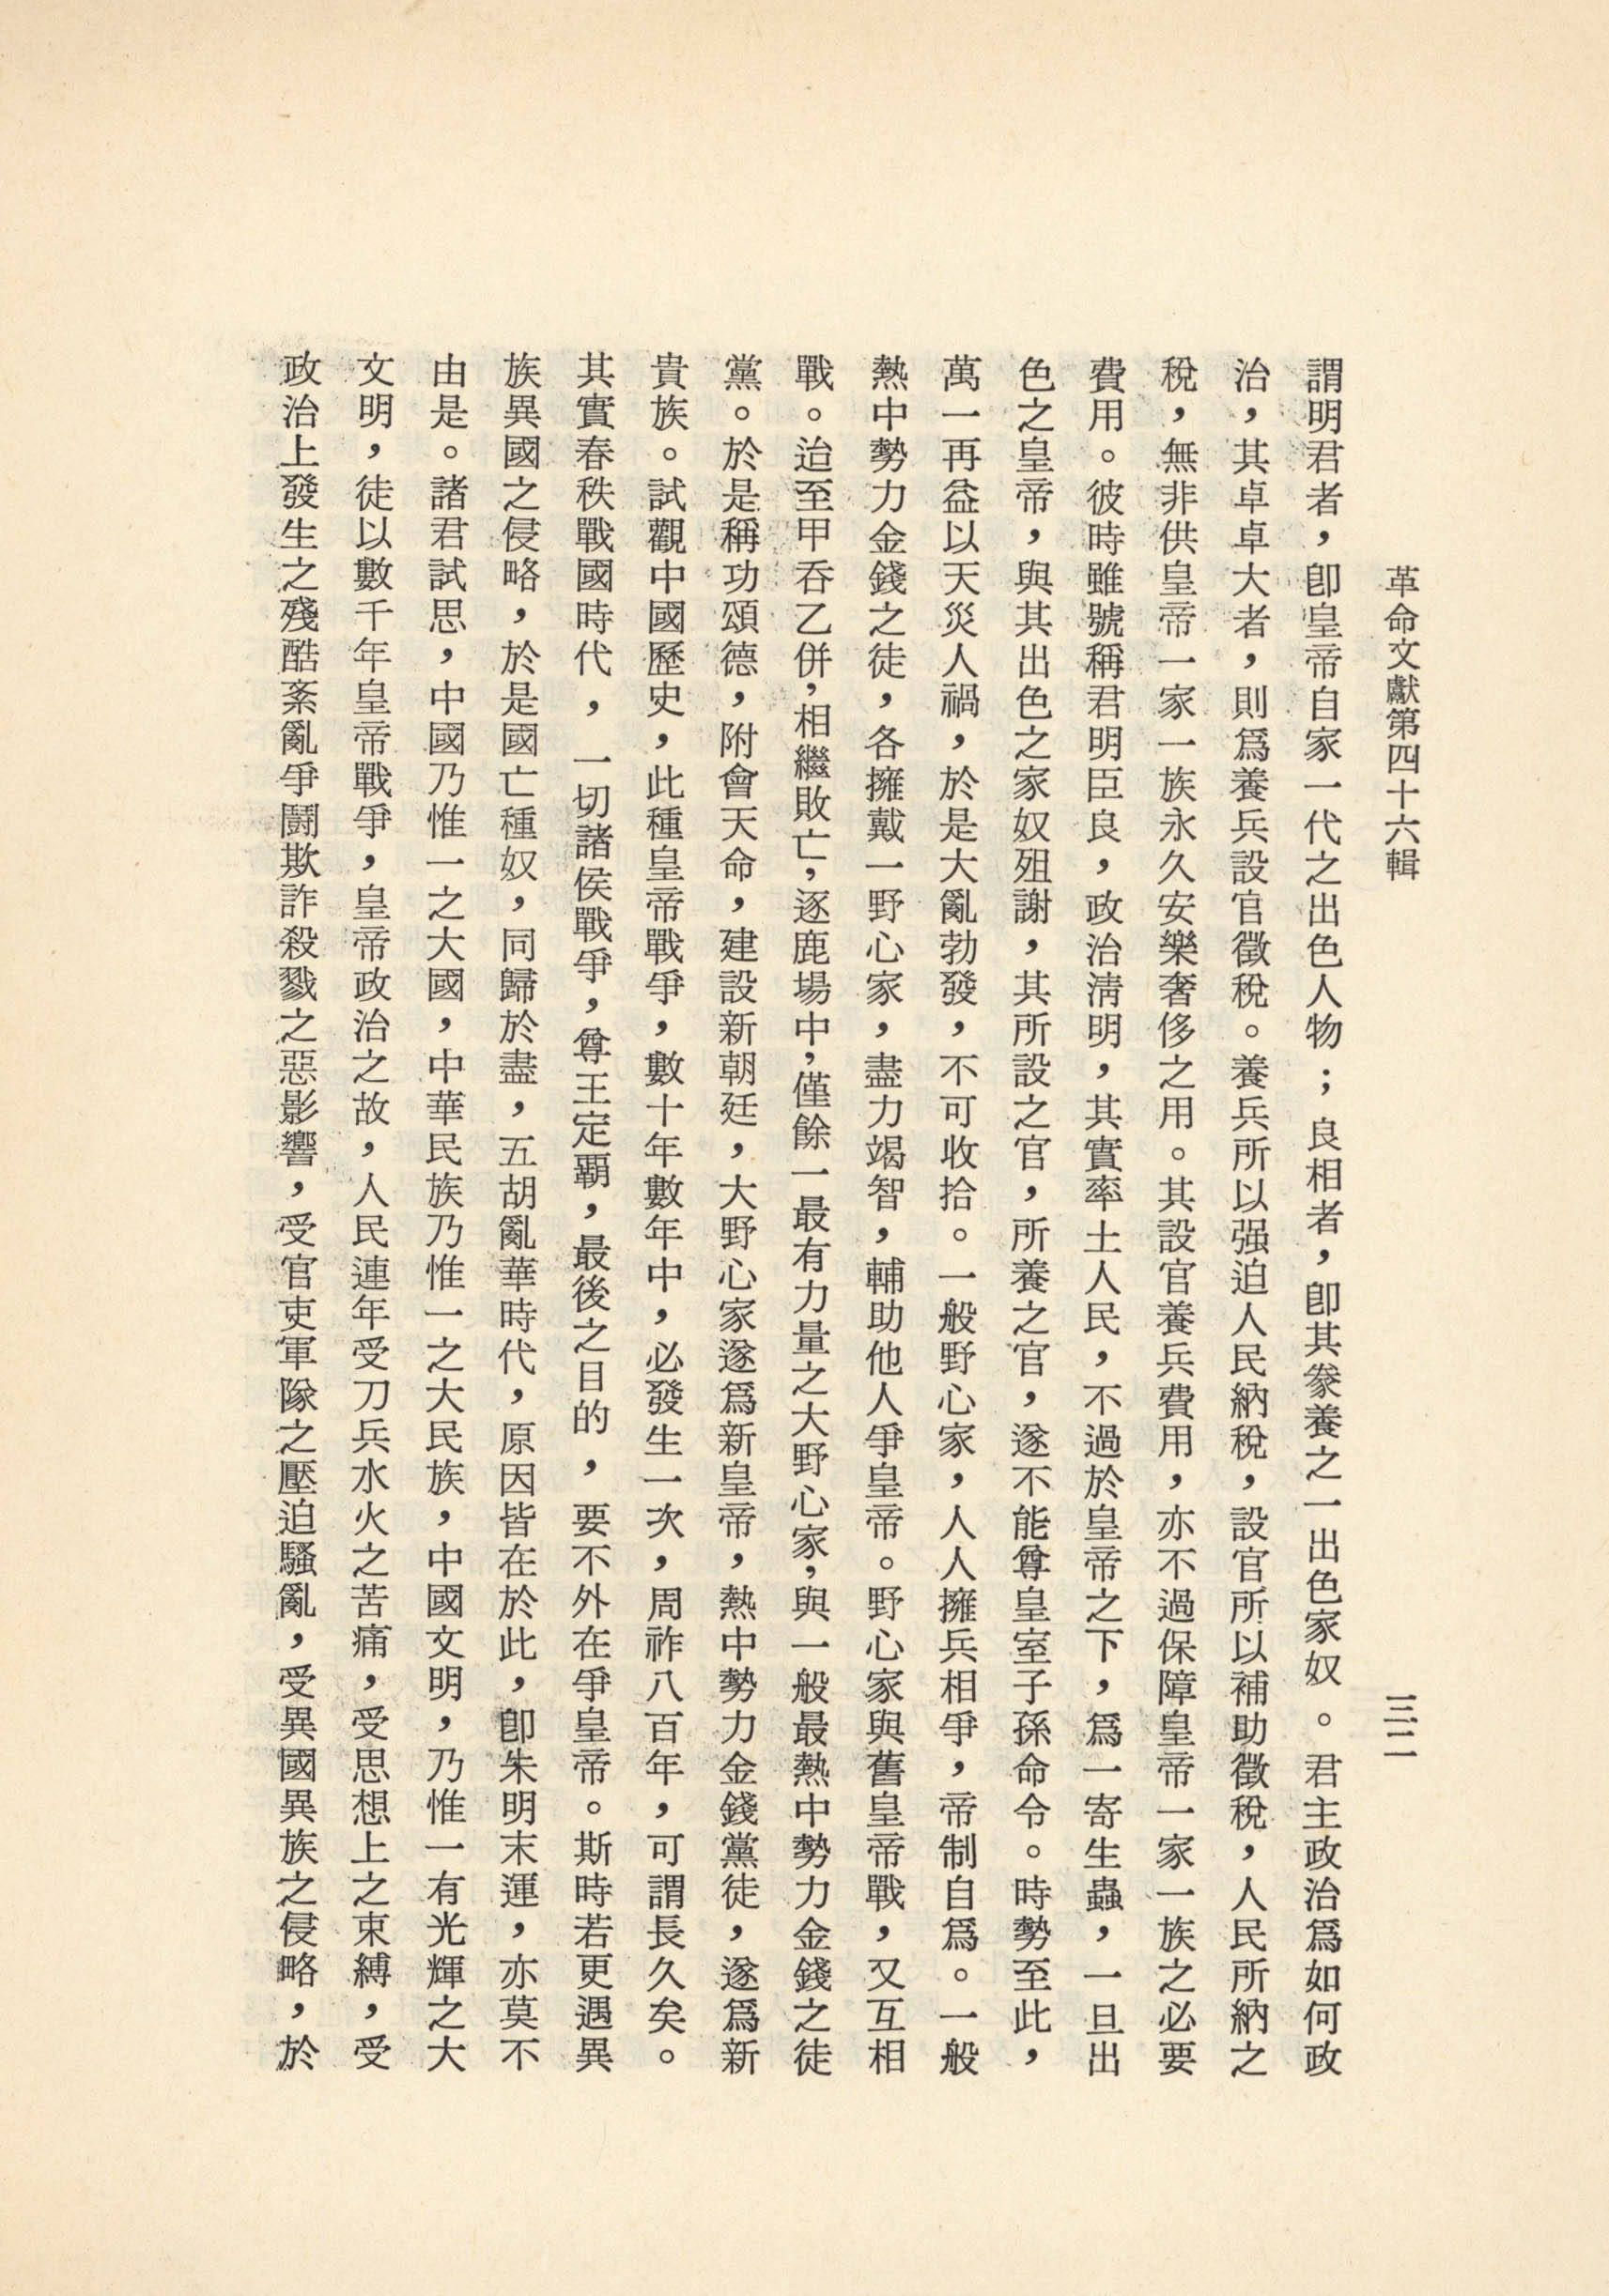 革命文獻第四十六輯
三二
謂明君者，卽皇帝自家一代之出色人物；良相者，卽其豢養之一出色家奴。君主政治爲如何政
治，其卓卓大者，則爲養兵設官徵稅。養兵所以强迫人民納稅，設官所以補助徵稅，人民所納之
稅，無非供皇帝一家一族永久安樂奢侈之用。其設官養兵費用，亦不過保障皇帝一家一族之必要
費用。彼時雖號稱君明臣良，政治淸明，其實率土人民，不過於皇帝之下，爲一寄生蟲，一旦出
色之皇帝，與其出色之家奴殂謝，其所設之官，所養之官，遂不能尊皇室子孫命令。時勢至此，
萬一再益以天災人禍，於是大亂勃發，不可收拾。一般野心家，人人擁兵相爭，帝制自爲。一般
熱中勢力金錢之徒，各擁戴一野心家，盡力竭智，輔助他人爭皇帝。野心家與舊皇帝戰，又互相
戰。迨至甲吞乙併，相繼敗亡，逐鹿場中，僅餘一最有力量之大野心家，與一般最熱中勢力金錢之徒
黨。於是稱功頌德，附會天命，建設新朝廷，大野心家遂爲新皇帝，熱中勢力金錢黨徒，遂爲新
貴族。試觀中國歷史，此種皇帝戰爭，數十年數年中，必發生一次，周祚八百年，可謂長久矣。
其實春秩戰國時代，一切諸侯戰爭，尊王定霸，最後之目的，要不外在爭皇帝。斯時若更遇異
族異國之侵略，於是國亡種奴，同歸於盡，五胡亂華時代，原因皆在於此，卽朱明末運，亦莫不
由是。諸君試思，中國乃惟一之大國，中華民族乃惟一之大民族，中國文明，乃惟一有光輝之大
文明，徒以數千年皇帝戰爭，皇帝政治之故，人民連年受刀兵水火之苦痛，受思想上之束縛，受
政治上發生之殘酷紊亂爭鬭欺詐殺戮之惡影響，受官吏軍隊之壓迫騷亂，受異國異族之侵略，於